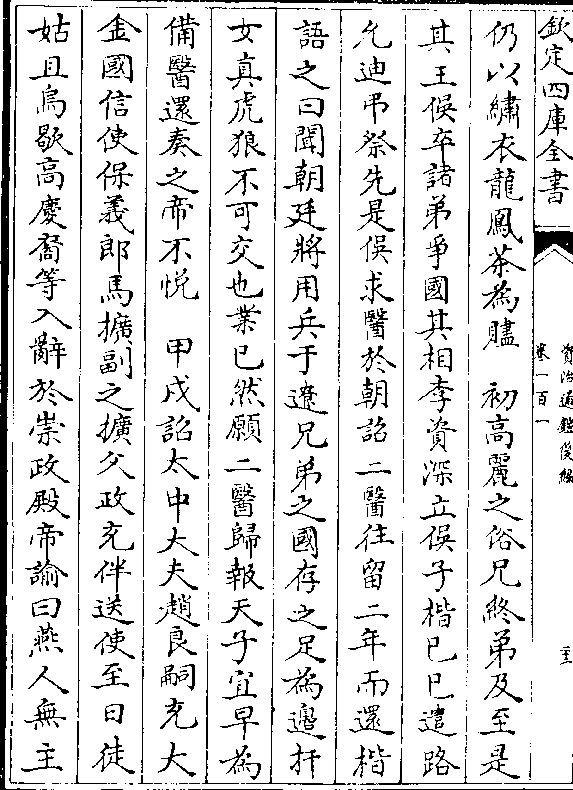 欽定四庫全書
資治通鑑後編
卷一百一
仍以繡衣龍鳳茶為贐　初高麗之俗兄終弟及至是
其王俁卒諸弟爭國其相李資深立俁子楷己巳遣路
允迪弔祭先是俁求醫於朝詔二醫往留二年而還楷
語之曰聞朝廷將用兵于遼兄弟之國存之足為邊扞
女真虎狼不可交也業已然願二醫歸報天子宜早為
備醫還奏之帝不悅　甲戌詔太中大夫趙良嗣充大
金國信使保義郎馬擴副之擴父政充伴送使至日徒
姑且烏歇高慶裔等入辭於崇政殿帝諭曰燕人無主